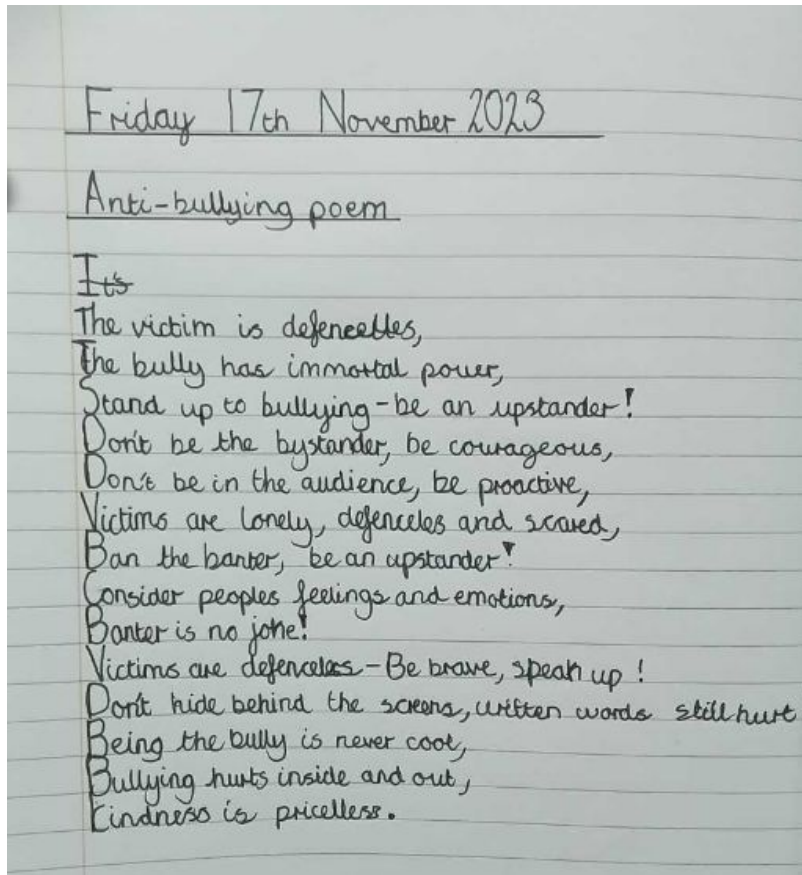 Friday 17th November 2023
Anti-bullying poem
It's
The victim is defenceless,
The bully has immortal power,
Stand up to bullying - be an upstander!
Don't be the bystander, be courageous,
Don't be in the audience, be proactive,
Victims are lonely, defenceles and scared,
Ban the banter, be an upstander!
Consider peoples feelings and emotions,
Banter is no joke!
Victims are defenceless - Be brave, speak up!
Don't hide behind the screens, written words still hurt
Being the bully is never cool,
Bullying hurts inside and out,
Kindness is pricelless.